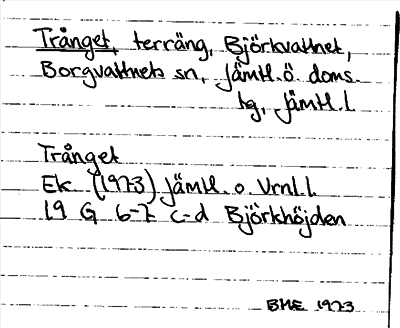 Trånget, terräng, Björkvattnet,
Borgvattnets sn, Jämtl. ö. doms.
hg, Jämtl. l
Trånget
Ek (1973) Jämtl. o. Vrnl. l
19 G 6-7 c-d Björkhöjden
BME 1973